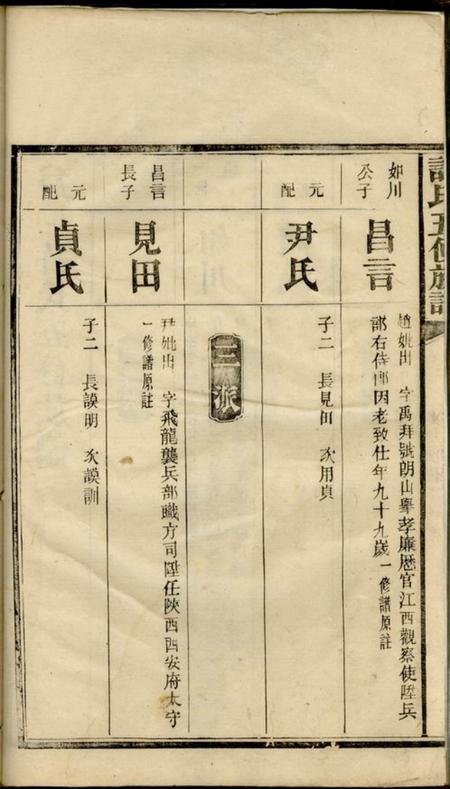 氏五修族譜
如川
公子
昌言
趙妣出 字禹拜號朗山舉孝廉歷官江西觀察使陞兵
部右侍郎因老致仕年九十九歲一修譜原註
元配
尹氏
子二 長見田 次用貞
三派
昌言
長子
見田
尹妣出 字飛龍襲兵部職方司陞任陝西西安府太守
一修譜原註
元配
貞氏
子二 長謨明 次謨訓